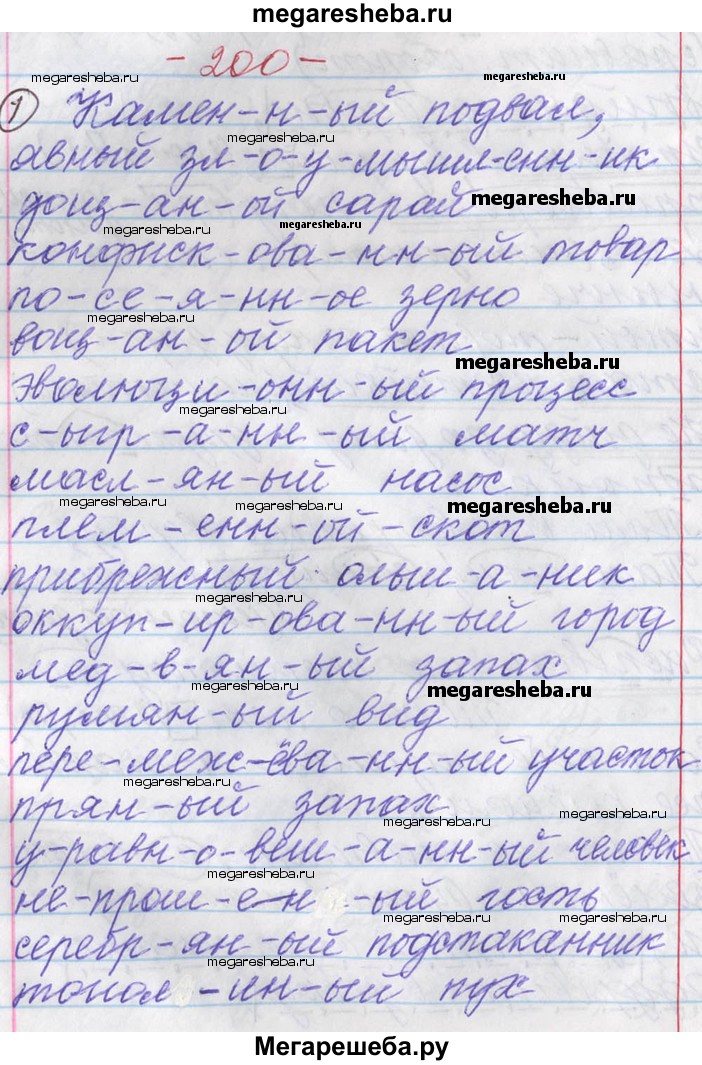 megaresheba.ru
- 200 -
megaresheba.ru megaresheba.ru
1 Камен-н-ый подвал,
megaresheba.ru
явный зл-о-у-мышл-енн-ик
дощ-ан-ой сарай megaresheba.ru
megaresheba.ru megaresheba.ru
конфиск-ова-нн-ый товар
по-се-я-нн-ое зерно
megaresheba.ru
вощ-ан-ой пакет
megaresheba.ru
эволюци-онн-ый процесс
megaresheba.ru
с-ыгр-а-нн-ый матч
масл-ян-ый насос
megaresheba.ru megaresheba.ru megaresheba.ru
плем-енн-ой-скот
прибрежный ольш-а-ник
megaresheba.ru
оккуп-ир-ова-нн-ый город
мед-в-ян-ый запах
megaresheba.ru megaresheba.ru
румян-ый вид
пере-меж-ёва-нн-ый участок
megaresheba.ru
прян-ый запах
megaresheba.ru megaresheba.ru
у-равн-о-веш-а-нн-ый человек
megaresheba.ru
не-прош-е-н-ый гость
megaresheba.ru megaresheba.ru
серебр-ян-ый подстаканник
megaresheba.ru
топол-ин-ый пух
Мегарешеба.ру